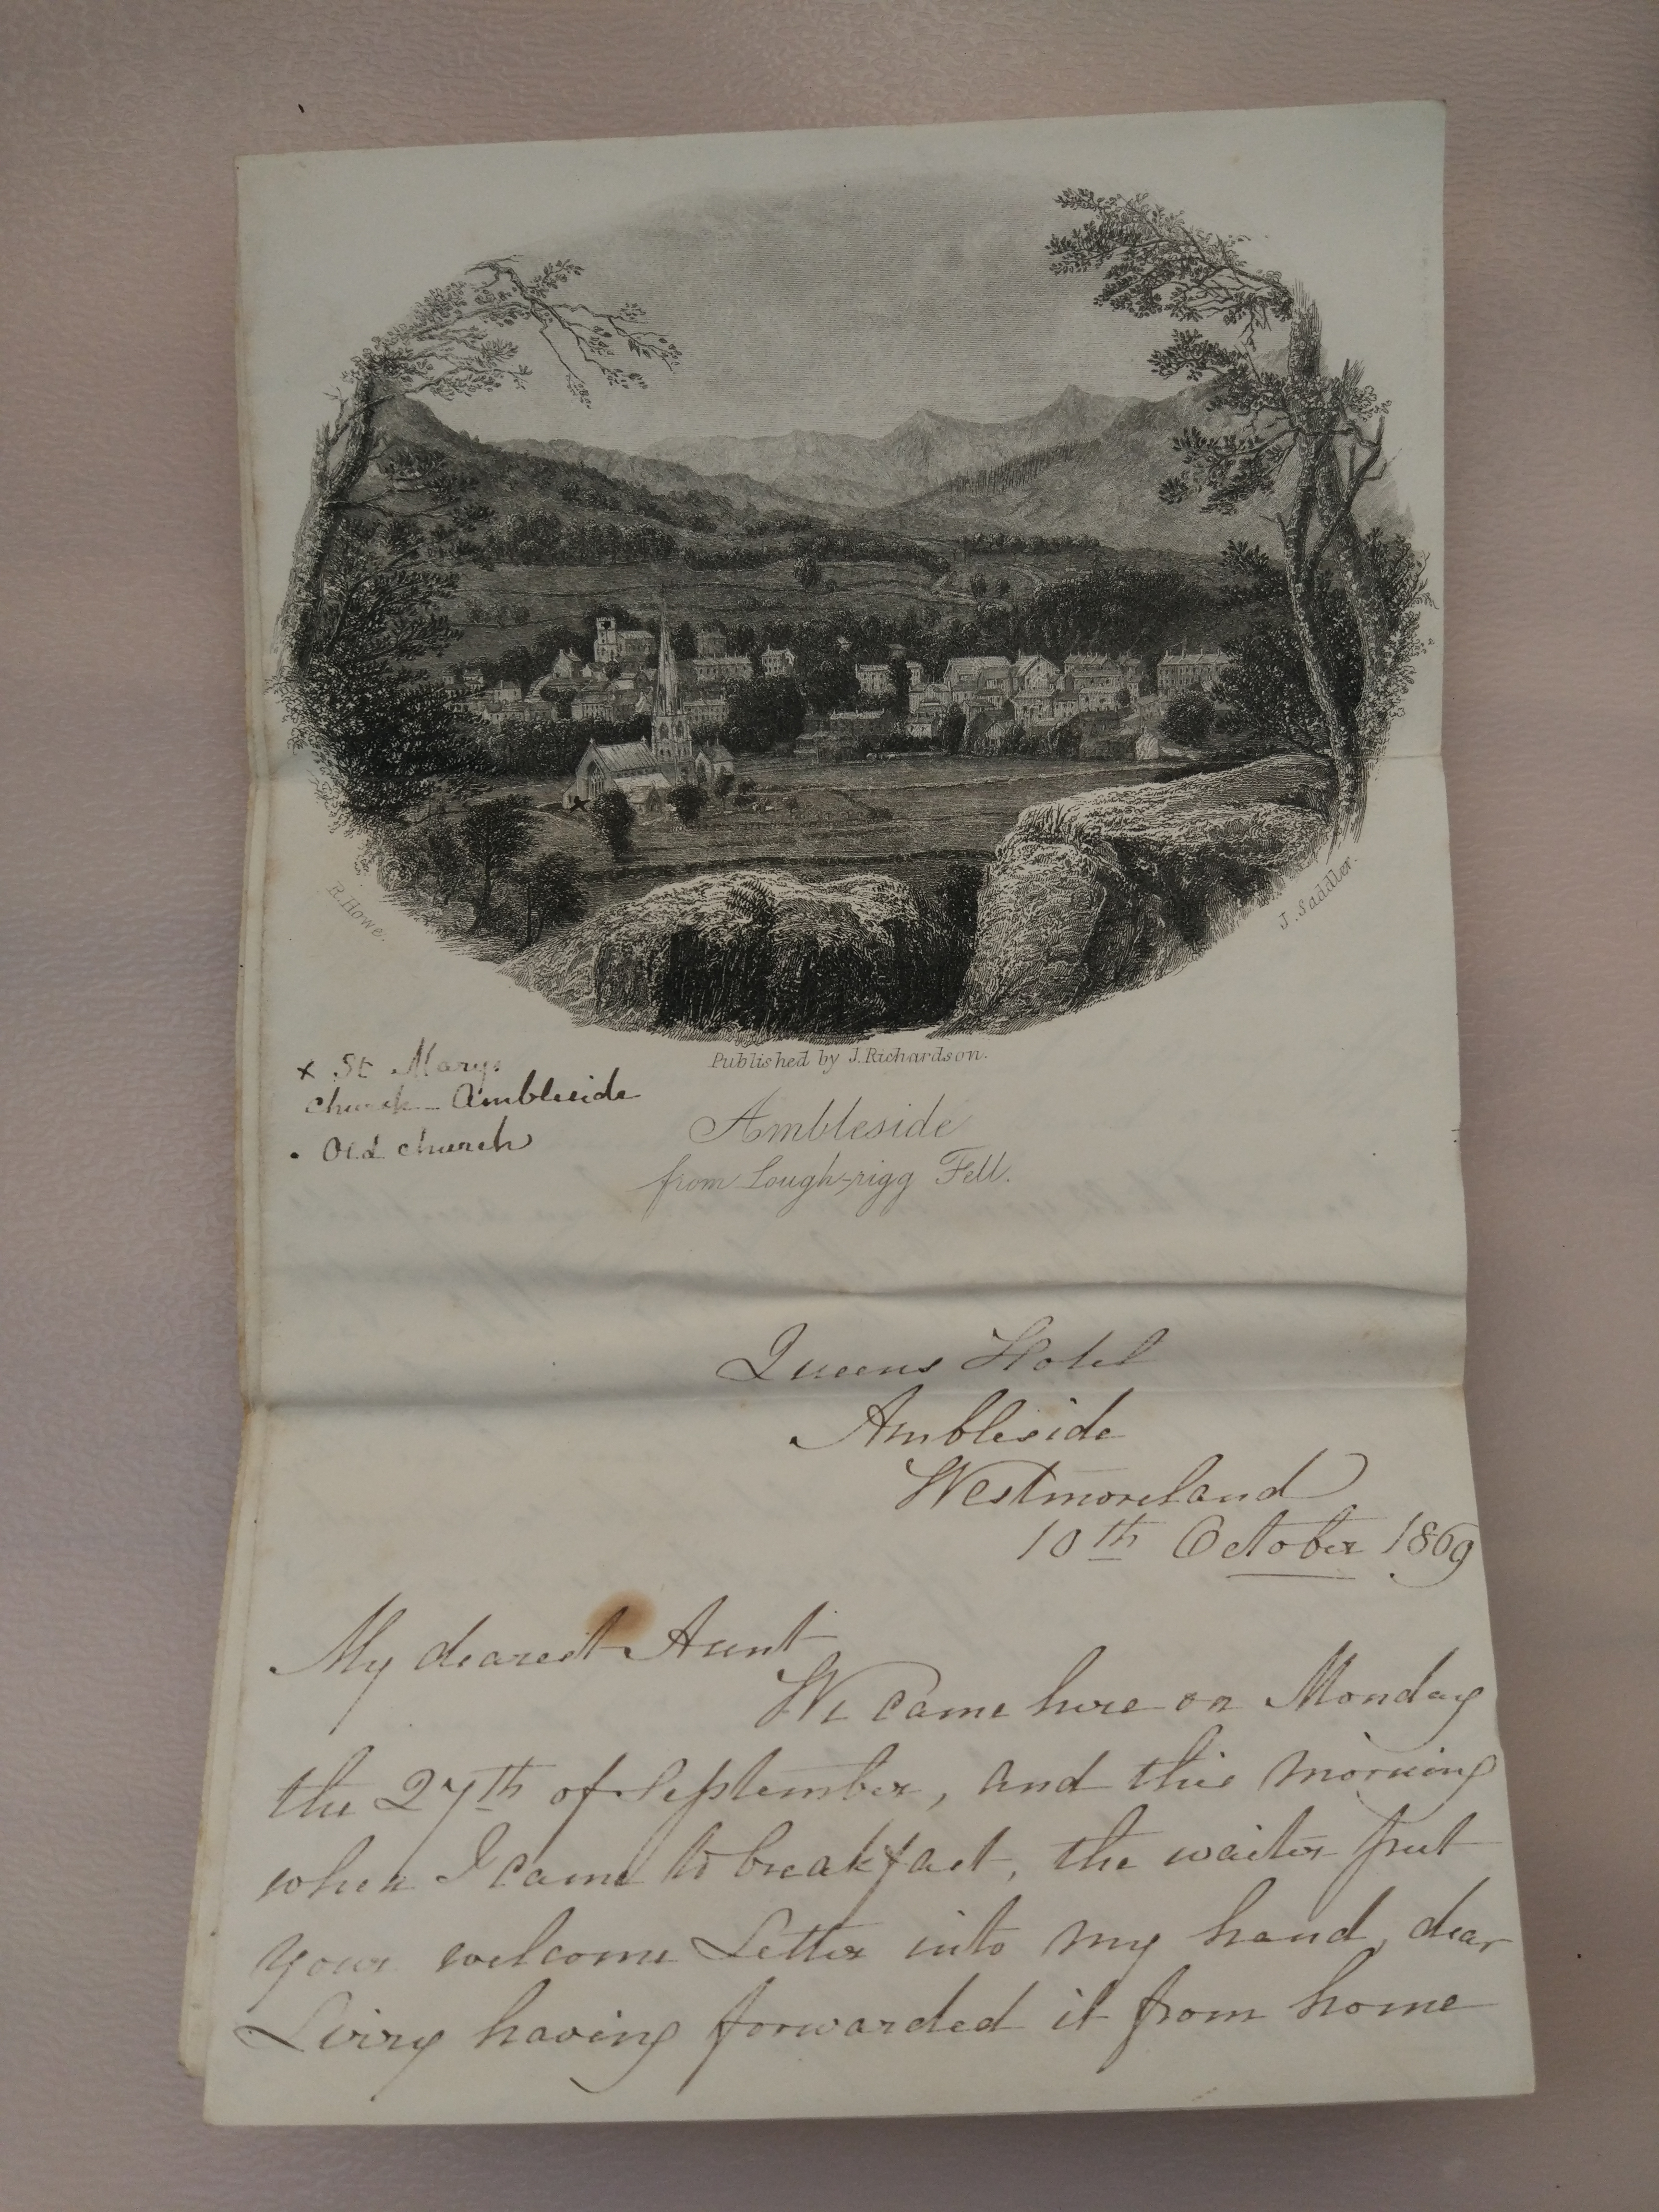 R. Howe.
J. Saddler.
Published by J. Richardson.
x St Marys
church - Ambleside
. Old church
Ambleside
from Lough-rigg Fell.
Queens Hotel
Ambleside
Westmoreland
10th October 1869
My dearest Aunt
We came here on Monday
the 27th of September, and this morning
when I came to breakfast, the waiter put
your welcome Letter into my hand, dear
having forwarded it from home